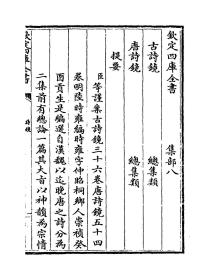 欽定四庫全書　集部八
古詩鏡　總集類
唐詩鏡　總集類
提要
臣等謹案古詩鏡三十六卷唐詩鏡五十四
卷明陸時雍編時雍字仲昭桐鄉人崇禎癸
酉貢生是編選自漢魏以迄晚唐之詩分為
二集前有總論一篇其大旨以神韻為宗情
欽定四庫全書
詩鏡